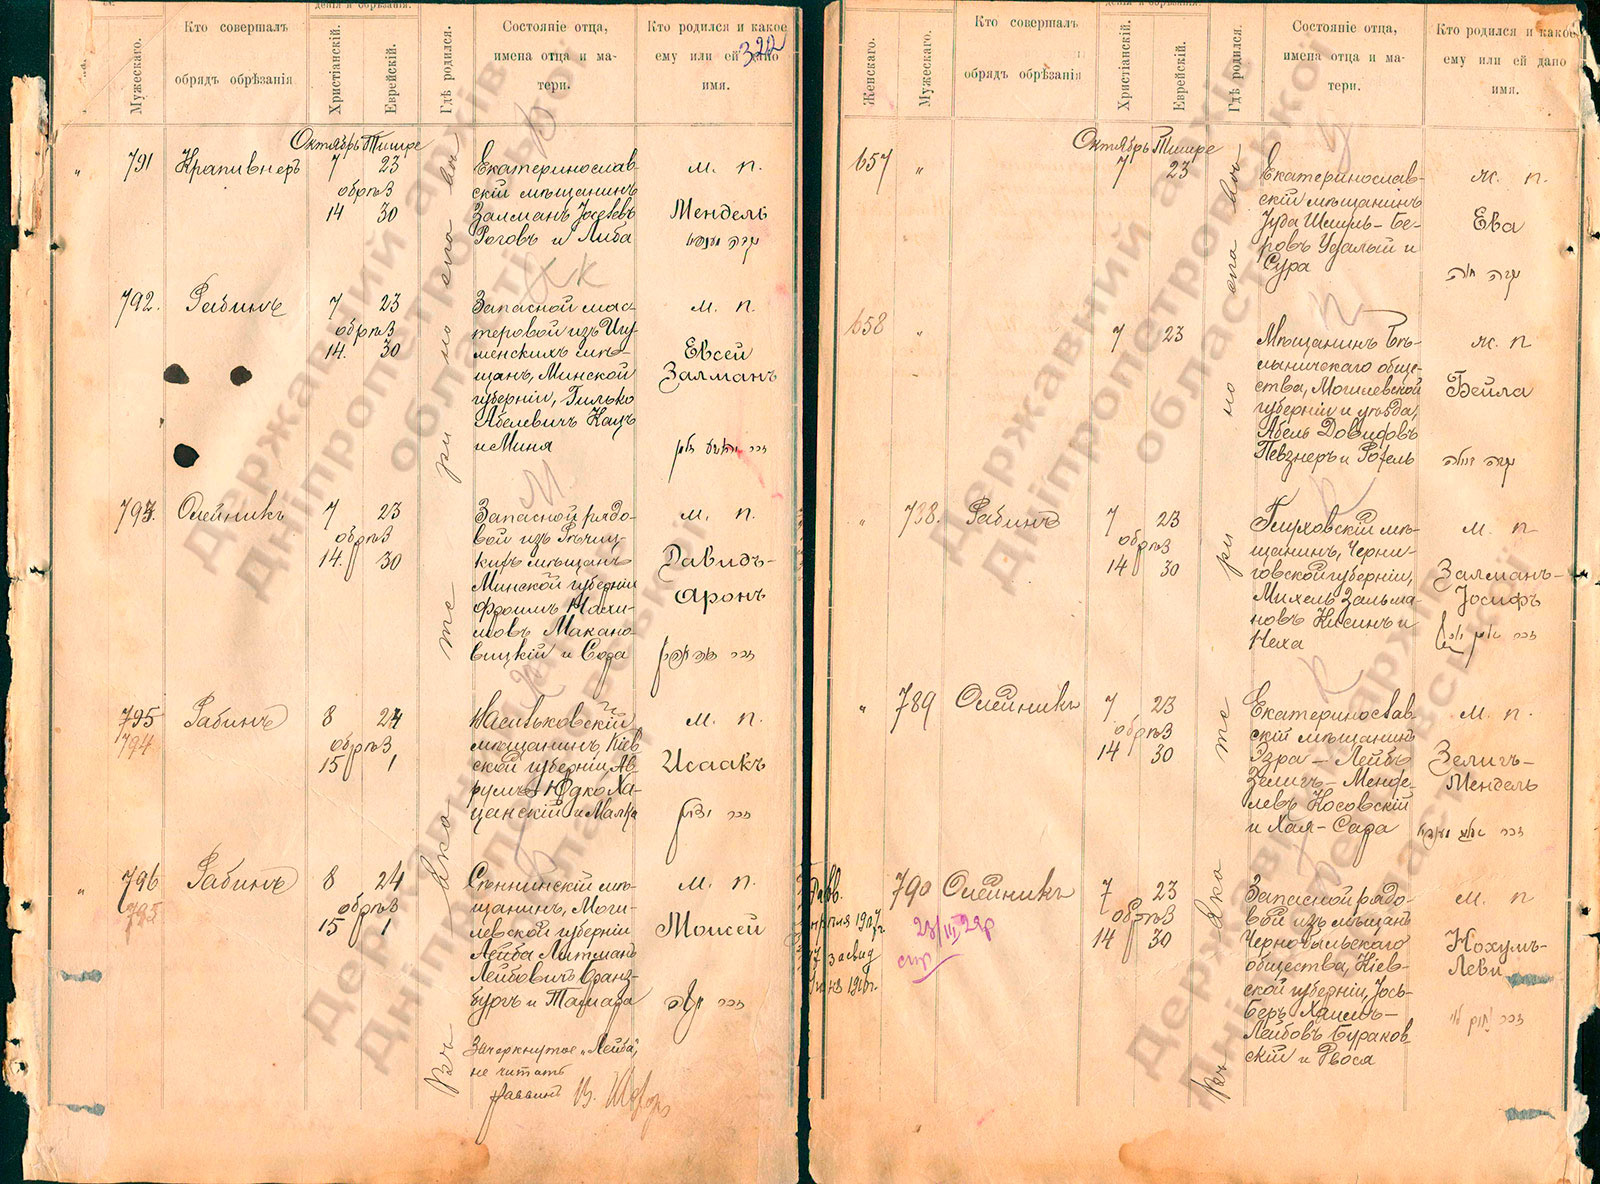 Мужескаго.
Кто совершалъ
обрядъ обрѣзанія
Христіанскій.
Еврейскій.
Гдѣ родился.
Состояніе отца,
имена отца и ма-
тери.
Кто родился и какое
ему или ей дано
имя.
322
Октябрь Тишре
791 Крапивнеръ 7 23
обрѣз
14 30
Екатеринослав-
скій мѣщанинъ
Залманъ Іосеевъ
Роговъ и Либа
м. п.
Мендель
792. Рабинъ 7 23
обрѣз
14. 30
Запасной мас-
теровой изъ Игу-
менскихъ мѣ-
щанъ, Минской
губерніи, Гилько
Абелевичъ Кацъ
и Миня
м. п.
Евсей
Залманъ
793. Олейникъ 7 23
обрѣз
14. 30
Запасной рядо-
вой изъ Рѣчиц-
кихъ мѣщанъ
Минской губерніи
Фроимъ Нохи-
мовъ Макано-
вицкій и Сора
м. п.
Давидъ-
Аронъ
795 Рабинъ 8 24
794
обрѣз
15 1
Васильковскій
мѣщанинъ, Кіев-
ской губерніи, Ав-
румъ Юдко Ха-
цанскій и Малка
м. п.
Исаакъ
796 Рабинъ 8 24
795
обрѣз
15 1
Сѣннинскій мѣ-
щанинъ, Моги-
левской губерніи
Лейба Литманъ
Лейбовичъ Гранз-
бургъ и Тамара
м. п.
Моисей
Зачеркнутое „Лейба",
не читать
раввинъ
Въ Екате ри но сла вѣ
Женскаго.
Мужескаго.
Кто совершалъ
обрядъ обрѣзанія
Христіанскій.
Еврейскій.
Гдѣ родился.
Состояніе отца,
имена отца и ма-
тери.
Кто родился и какое
ему или ей дано
имя.
Октябрь Тишре
657 " 7 23
Екатеринослав-
скій мѣщанинъ
Іуда Шмуль-Бе-
ровъ Удалый и
Сура
ж. п.
Ева
658 " 7 23
Мѣщанинъ Бѣ-
лыничскаго обще-
ства, Могилевской
губерніи и уѣзда,
Абель Довидовъ
Певзнеръ и Рохель
ж. п
Бейла
" 788. Рабинъ 7 23
обрѣз
14 30
Глуховскій мѣ-
щанинъ, Черни-
говской губерніи,
Михель Зальма-
новъ Кисинъ и
Неха
м. п
Залманъ-
Іосифъ
" 789 Олейникъ 7 23
обрѣз
14 30
Екатеринослав-
скій мѣщанинъ
Эзра-Лейбъ
Зелигъ-Менде-
левъ Косовскій
и Хая-Сара
м. п.
Зелигъ-
Мендель
790 Олейникъ 7 23
обрѣз
14 30
Запасной рядо-
вой изъ мѣщанъ
Чернобыльскаго
общества, Кіев-
ской губерніи, Іось-
Беръ Хаимъ-
Лейбовъ Бураков-
скій и Рвоса
м. п
Нохумъ-
Леви
Въ Екате ри но сла вѣ
Державний архів
Дніпропетровської
області